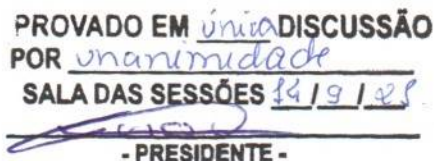 PROVADO EM única DISCUSSÃO
POR unanimidade
SALA DAS SESSÕES 14 / 9 / 21
- PRESIDENTE -